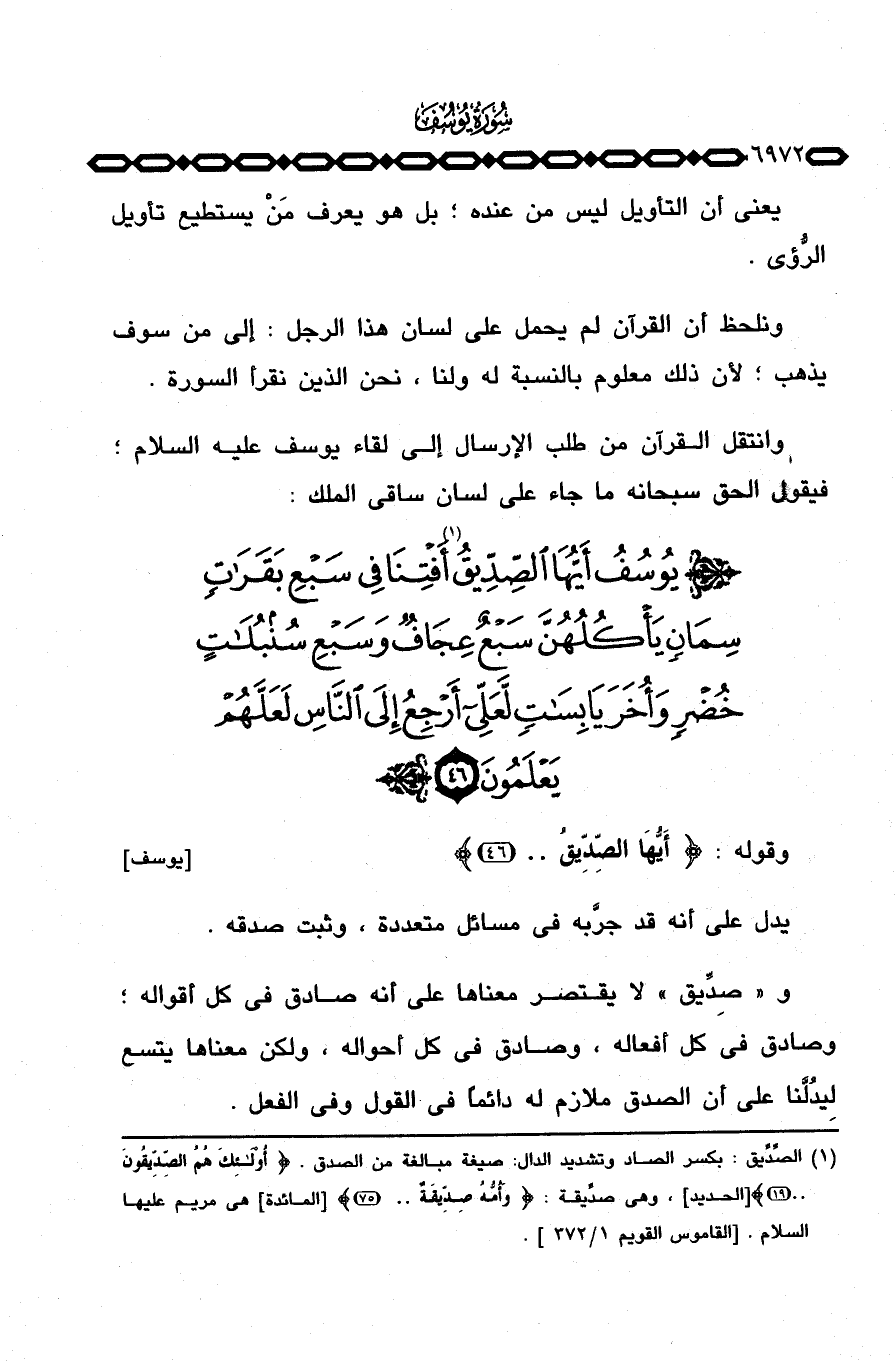 سُورَةُ يُوسُفَ
٦٩٧٢
يعنى أن التأويل ليس من عنده ؛ بل هو يعرف مَنْ يستطيع تأويل
الرُّؤى .
ونلحظ أن القرآن لم يحمل على لسان هذا الرجل : إلى من سوف
يذهب ؛ لأن ذلك معلوم بالنسبة له ولنا ، نحن الذين نقرأ السورة .
وانتقل القرآن من طلب الإرسال إلى لقاء يوسف عليه السلام ؛
فيقول الحق سبحانه ما جاء على لسان ساقى الملك :
يُوسُفُ أَيُّهَا ٱلصِّدِّيقُ (١) أَفْتِنَا فِى سَبْعِ بَقَرَٰتٍ
سِمَانٍ يَأْكُلُهُنَّ سَبْعٌ عِجَافٌ وَسَبْعِ سُنۢبُلَٰتٍ
خُضْرٍ وَأُخَرَ يَابِسَٰتٍ لَّعَلِّىٓ أَرْجِعُ إِلَى ٱلنَّاسِ لَعَلَّهُمْ
يَعْلَمُونَ ٤٦
وقوله : ﴿ أَيُّهَا الصِّدِّيقُ .. (٤٦) ﴾ [يوسف]
يدل على أنه قد جرَّبه فى مسائل متعددة ، وثبت صدقه .
و « صِدِّيق » لا يقتصر معناها على أنه صادق فى كل أقواله ؛
وصادق فى كل أفعاله ، وصادق فى كل أحواله ، ولكن معناها يتسع
لِيدُلَّنا على أن الصدق ملازم له دائماً فى القول وفى الفعل .
(١) الصِّدِّيق : بكسر الصاد وتشديد الدال: صيغة مبالغة من الصدق . ﴿ أُوْلَٰئِكَ هُمُ الصِّدِّيقُونَ
..(١٩)﴾[الحديد] ، وهى صدِّيقة : ﴿ وَأُمُّهُ صِدِّيقَةٌ .. (٧٥)﴾ [المائدة] هى مريم عليها
السلام . [القاموس القويم ٣٧٢/١ ] .